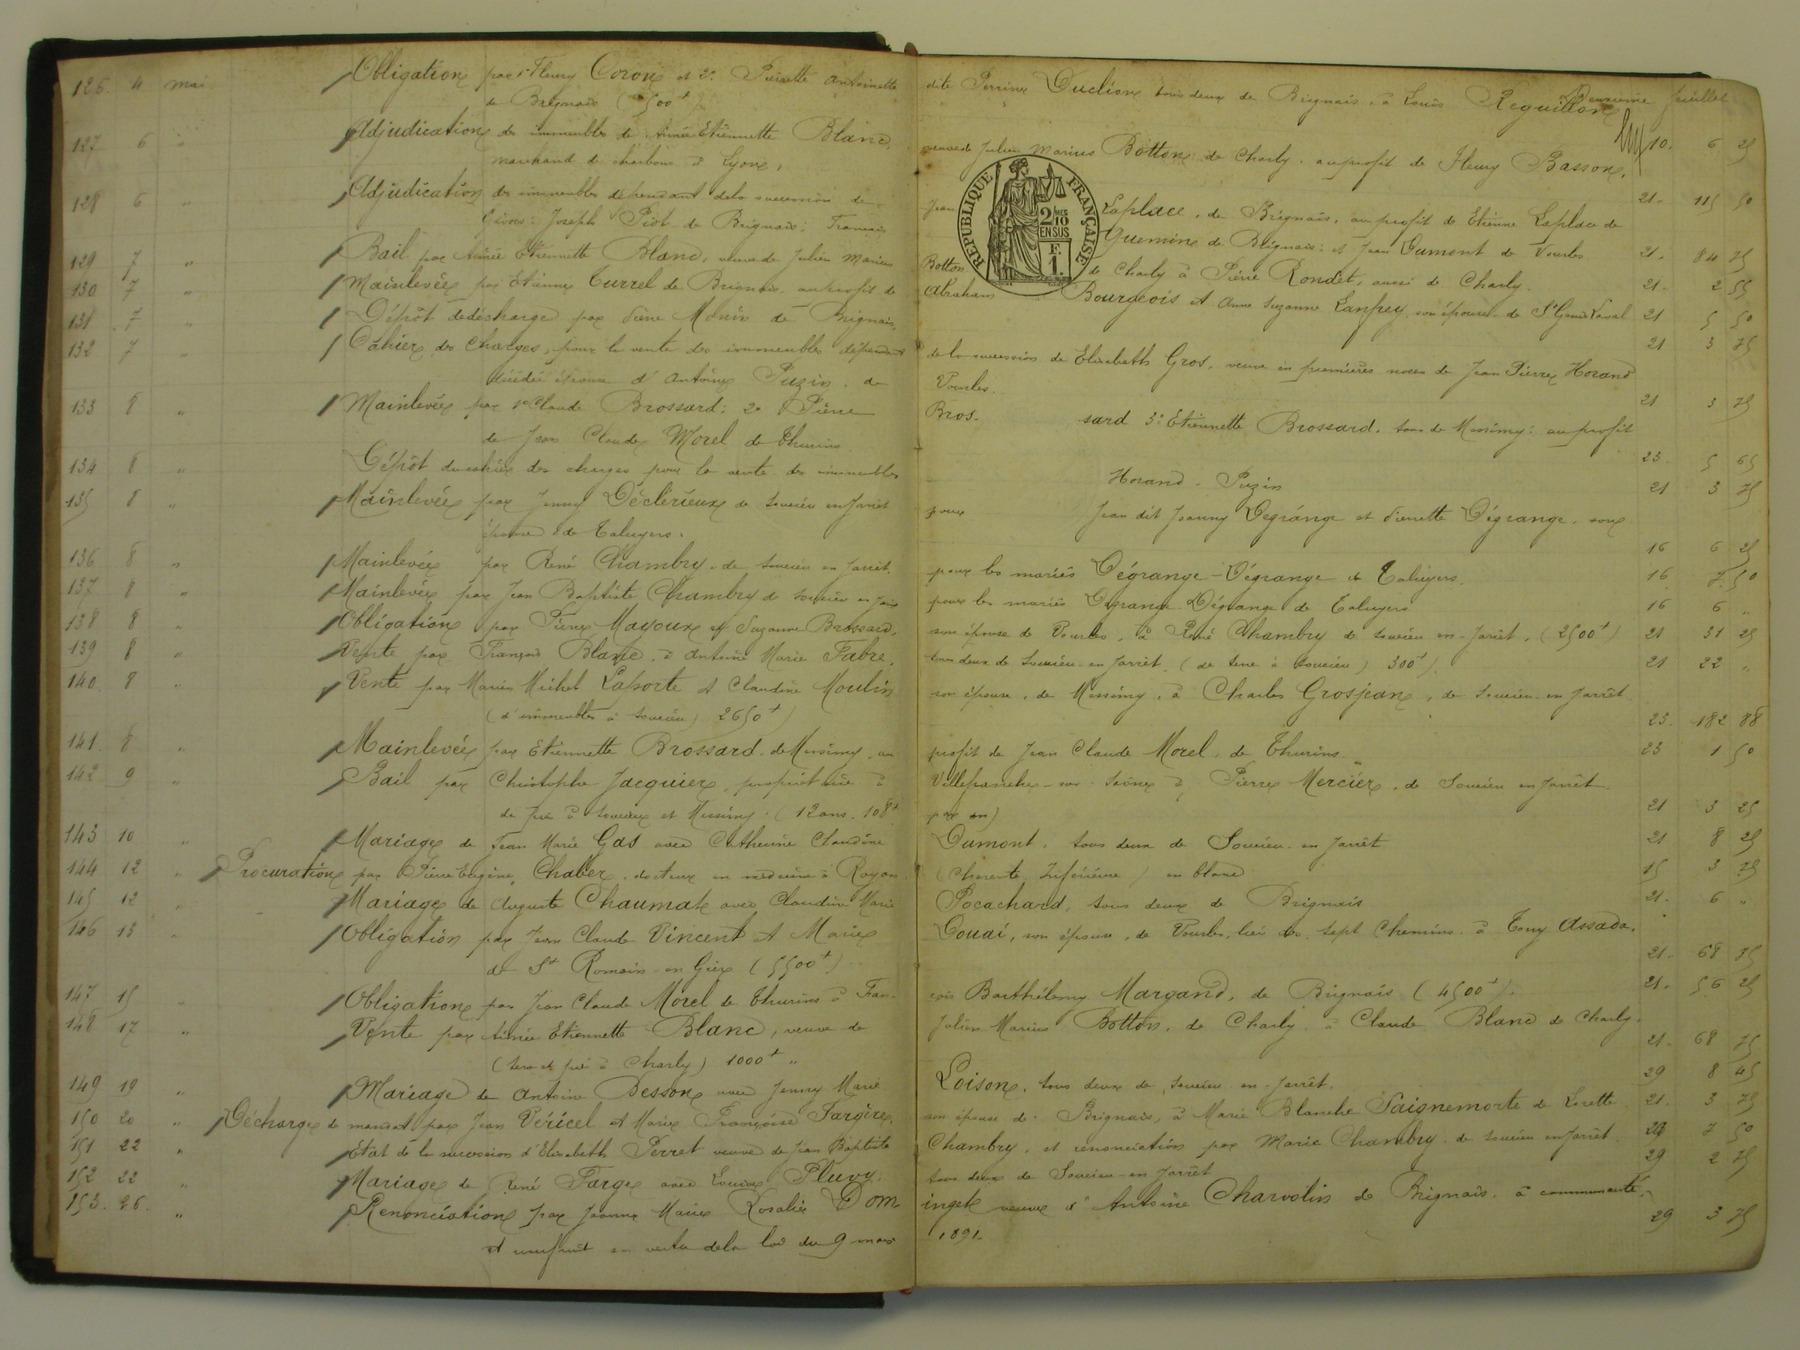 Deuxième feuillet
126 4 mai Obligation par 1° Fleury Coron et 2° Pierrette Antoinette dite Perrine Duclion tous deux de Brignais, à Louis Reguillon
de Brignais ( 500f ) 10. 6 25
127 6 " Adjudication des immeubles de Aimée Etiennette Blanc, veuve de Julien Marius Botton de Charly. au profit de Fleury Basson,
marchand de charbons à Lyon, 21. 115 50
128 6 " Adjudication des immeubles dépendant de la succession de Jean Laplace, de Brignais, au profit de Etienne Laplace de
Givors; Joseph Piot de Brignais; François Guemine de Brignais; et Jean Dumont de Vourles 21. 84 75
RÉPUBLIQUE FRANÇAISE
2/10 EN SUS
F. 1.
129 7 " Bail par Aimée Etiennette Blanc, veuve de Julien Marius Botton de Charly à Pierre Rondet, aussi de Charly. 21. 2 55
130 7 " Mainlevée par Etienne Turrel de Brignais au profit de Abraham Bourgeois et Anne Suzanne Lanfrey son épouse de St Genis Laval 21 5 50
131 7 " Dépôt de décharge par Pierre Monin de Brignais, 21 3 75
132 7 " Cahier des Charges, pour la vente des immeubles dépendant de la succession de Elisabeth Gros, veuve en premières noces de Jean Pierre Horand
décédée épouse d'Antoine Puzin. de Vourles. 21 3 75
133 8 " Mainlevée par 1° Claude Brossard; 2° Pierre Brossard 3° Etiennette Brossard. tous de Messimy; au profit
de Jean Claude Morel de Thurins 23. 5 65
134 8 " Dépôt du cahier des charges pour la vente des immeubles Horand - Puzin 21 3 75
135 8 " Mainlevée par Jenny Déclérieux de Soucieu en Jarret pour Jean dit Joanny Dégrange et Pierrette Dégrange. son
épouse de Taluyers. 16 6 25
136 8 " Mainlevée par René Chambry de Soucieu en Jarret. pour les mariés Dégrange-Dégrange de Taluyers. 16 7 50
137 8 " Mainlevée par Jean Baptiste Chambry de Soucieu en Jarret pour les mariés Dégrange Dégrange de Taluyers 16 6 "
138 8 " Obligation par Pierre Mayoux et Suzanne Brossard, son épouse de Vourles, à René Chambry de Soucieu en-Jarrêt. (2500f) 21 31 25
139 8 " Vente par François Blanc, à Antoine Marie Fabre, tous deux de Soucieu-en Jarret. (de terre à Soucieu) 300f). 21 22 "
140. 8 " Vente par Marie Michel Laporte et Claudine Moulin son épouse, de Messimy, à Charles Grosjean, de Soucieu en Jarrêt.
(d'immeubles à Soucieu) 2650f) 23. 182 88
141. 8 " Mainlevée par Etiennette Brossard de Messimy, au profit de Jean Claude Morel, de Thurins 23 1 50
142 9 " Bail par Christophe Jacquier, propriétaire à Villefranche-sur-Saône à Pierre Mercier, de Soucieu en Jarrêt
de pré à Soucieu et Messimy. (12 ans. 108f par an) 21 3 25
143 10 " Mariage de Jean Marie Gas avec Catherine Claudine Dumont, tous deux de Soucieu en Jarrêt 21 8 25
144 12 " Procuration par Pierre Eugène Chaber, docteur en médecine à Royan (Charente Inférieure) en blanc 15 3 75
145 12 " Mariage de Auguste Chaumat avec Claudine Marie Pocachard, tous deux de Brignais 21. 6 "
146 13 " Obligation par Jean Claude Vincent et Marie Douai, son épouse, de Vourles, lieu des Sept Chemins à Tony Assada.
de St Romain-en Gier (5500f) 21. 68 75
147 15 " Obligation par Jean Claude Morel de Thurins à François Barthélemy Margand, de Brignais (4500f). 21. 56 25
148 17 " Vente par Aimée Etiennette Blanc, veuve de Julien Marius Botton, de Charly à Claude Blanc de Charly.
(terre et pré à Charly) 1000f " 21. 68 75
149 19 " Mariage de Antoine Besson avec Jenny Marie Loison, tous deux de Soucieu-en-Jarrêt. 29 8 45
150 20 " Décharge de mandat par Jean Véricel et Marie Françoise Fargère, son épouse de Brignais, à Marie Blanche Saignemorte de Lorette 21. 3 75
151 22 " Etat de la succession d'Elisabeth Perret veuve de Jean Baptiste Chambry, et renonciation par Marie Chambry de Soucieu en Jarrêt. 29 7 50
152 22 " Mariage de René Farge avec Louise Pluvy. tous deux de Soucieu-en Jarrêt 29 2 75
153. 26. " Renonciation par Jeanne Marie Rosalie Domingek veuve d'Antoine Charvolin de Brignais. à communauté,
et usufruit en vertu de la loi du 9 mars 1891. 29 3 75